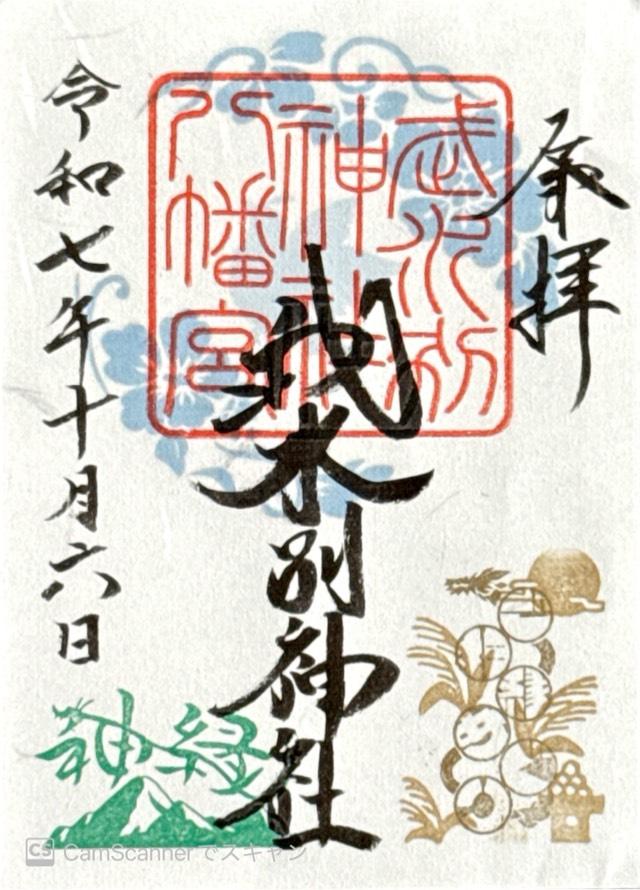 奉拝
武水別
神社
八幡宮
武水別神社
令和七年十月六日
CS CamScannerでスキャン